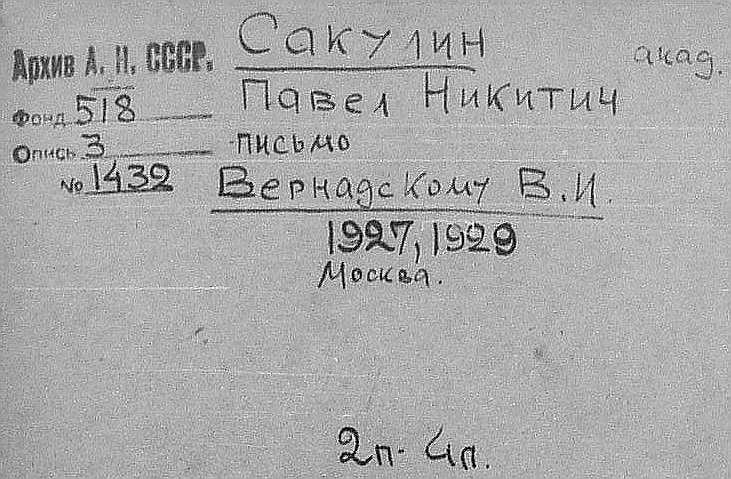 Сакулин
Архив А. Н. СССР.
акад.
Павел Никитич
Фонд 518
письмо
Опись 3
№ 1432
Вернадскому В.И.
1927, 1929
Москва.
2п. 4л.